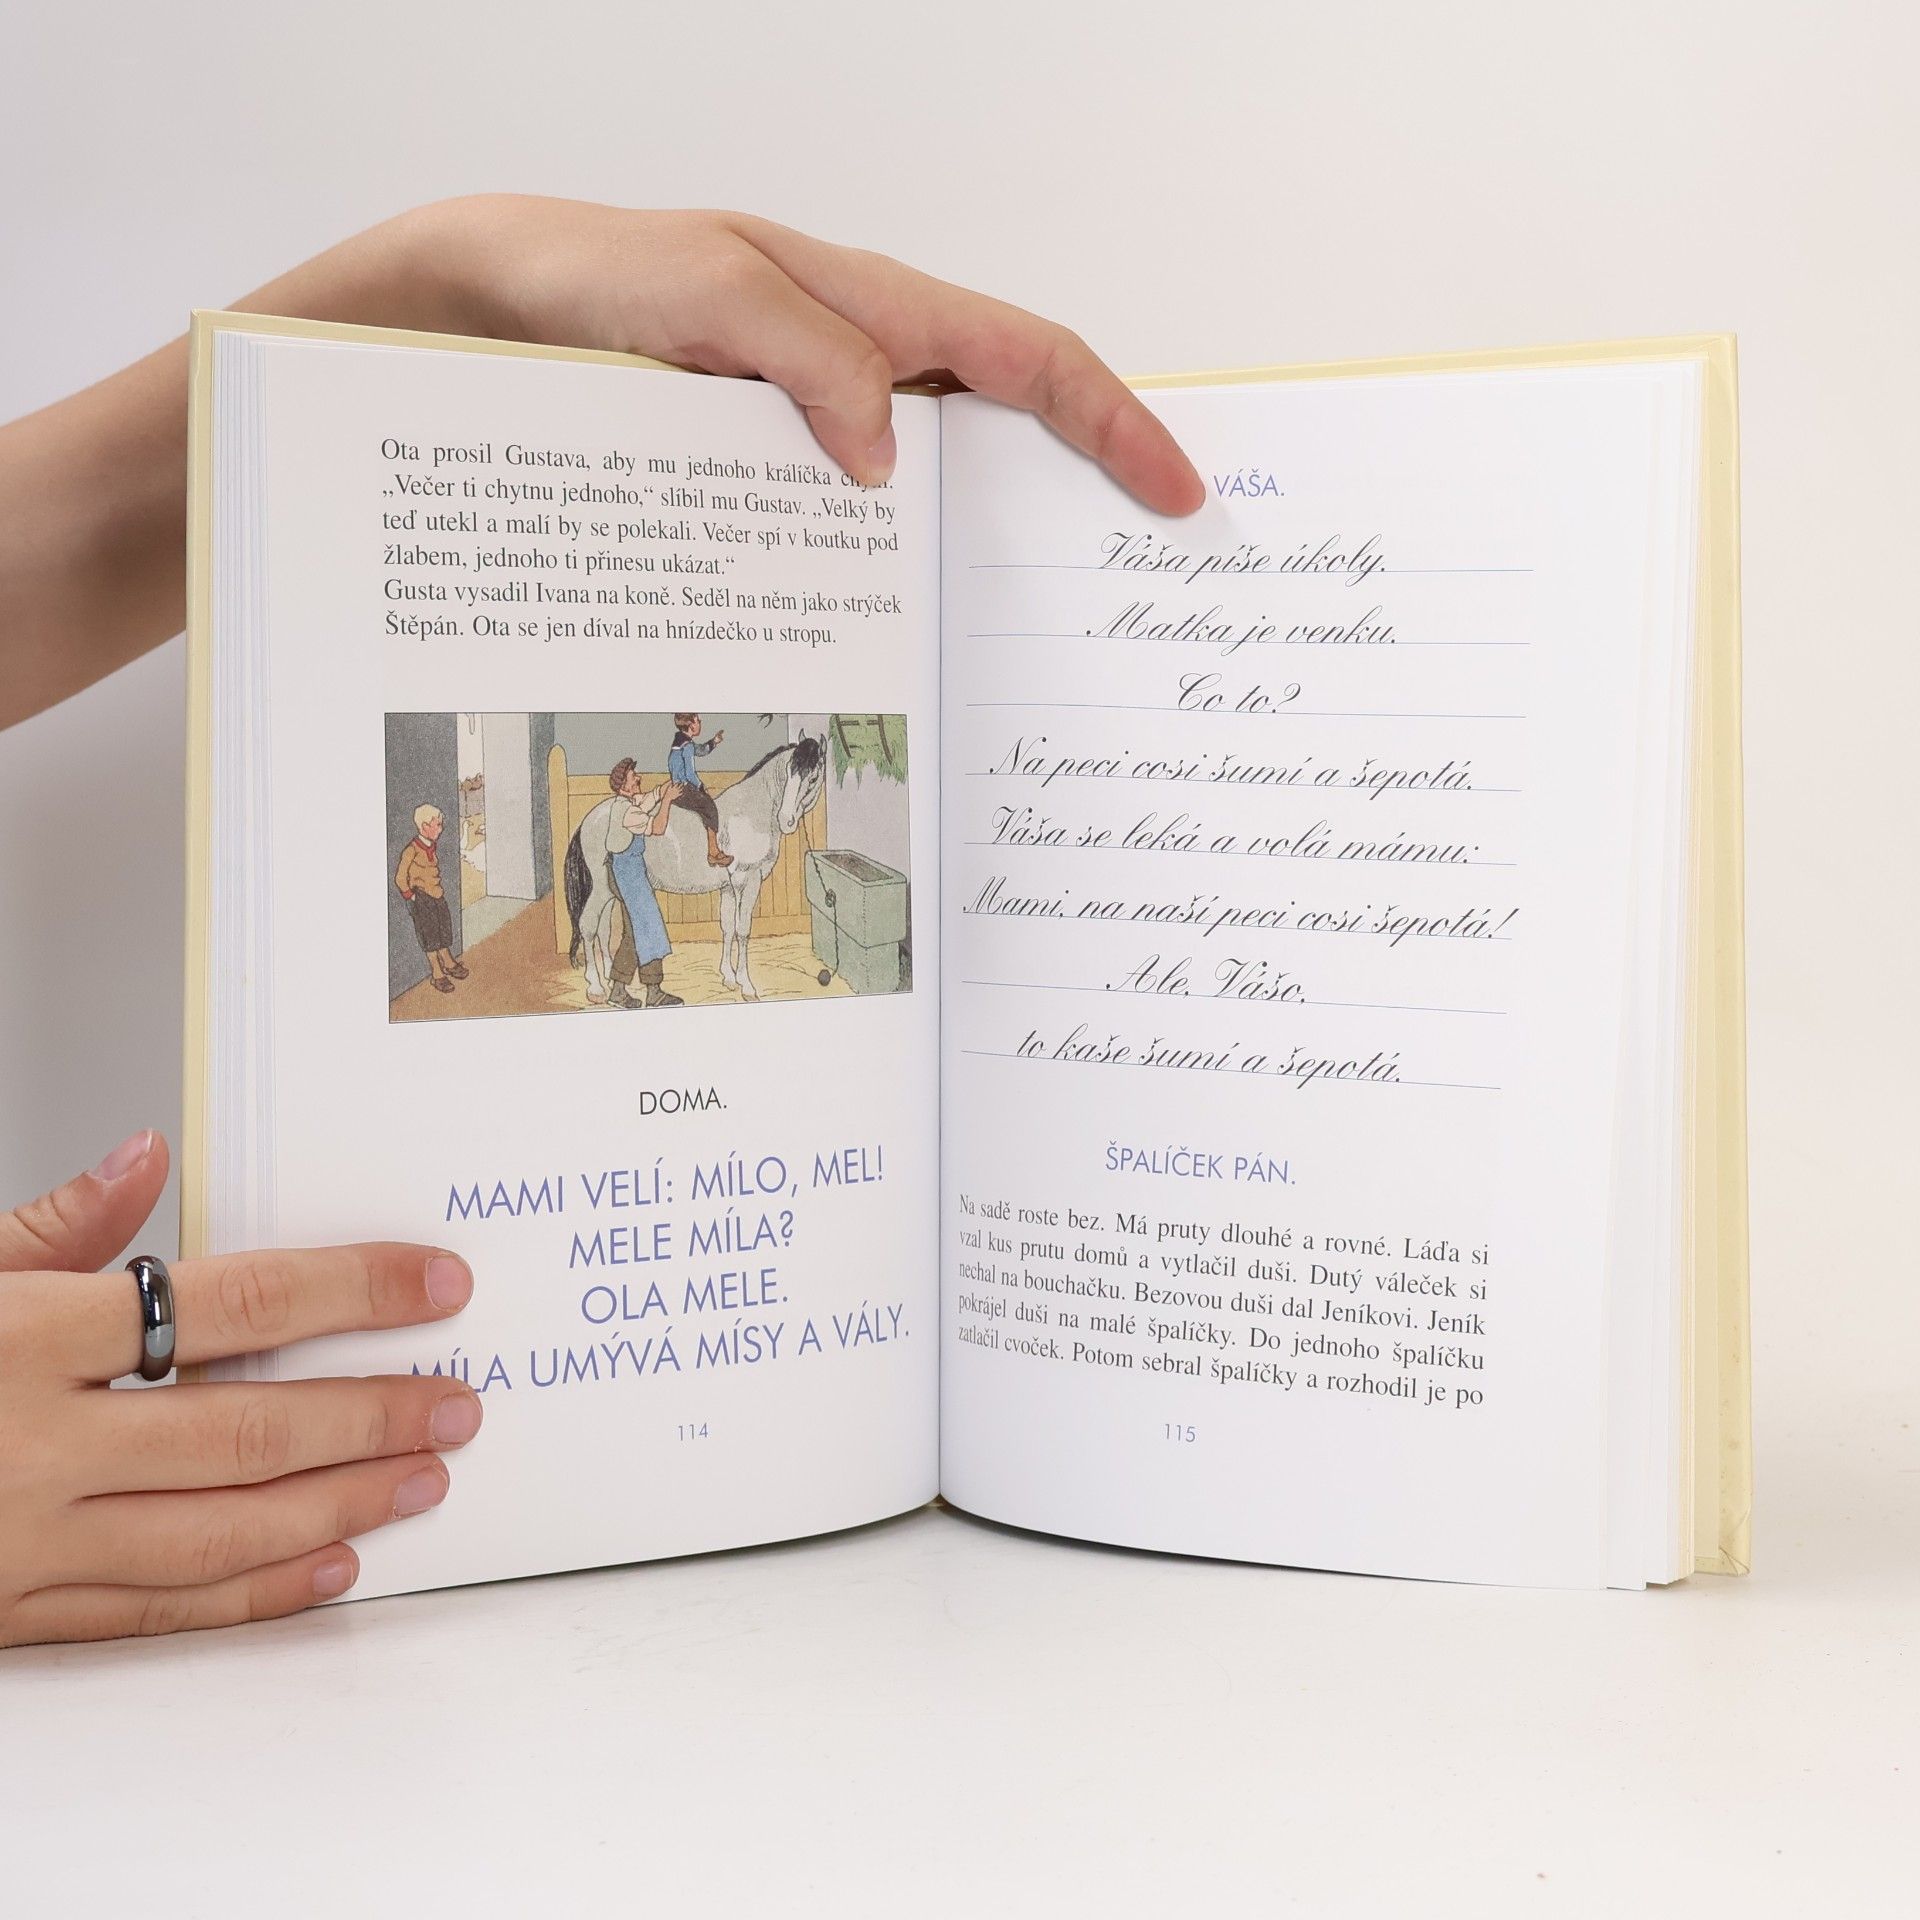 Ota prosil Gustava, aby mu jednoho králíčka
„Večer ti chytnu jednoho,“ slíbil mu Gustav. „Velký by
teď utekl a malí by se polekali. Večer spí v koutku pod
žlabem, jednoho ti přinesu ukázat.“
Gusta vysadil Ivana na koně. Seděl na něm jako strýček
Štěpán. Ota se jen díval na hnízdečko u stropu.
DOMA.
MAMI VELÍ: MÍLO, MEL!
MELE MÍLA?
OLA MELE.
MÍLA UMÝVÁ MÍSY A VÁLY.
114
VÁŠA.
Váša píše úkoly.
Matka je venku.
Co to?
Na peci cosi šumí a šepotá.
Váša se leká a volá mámu:
Mami, na naší peci cosi šepotá!
Ale, Vášo,
to kaše šumí a šepotá.
ŠPALÍČEK PÁN.
Na sadě roste bez. Má pruty dlouhé a rovné. Láďa si
vzal kus prutu domů a vytlačil duši. Dutý váleček si
nechal na bouchačku. Bezovou duši dal Jeníkovi. Jeník
pokrájel duši na malé špalíčky. Do jednoho špalíčku
zatlačil cvoček. Potom sebral špalíčky a rozhodil je po
115